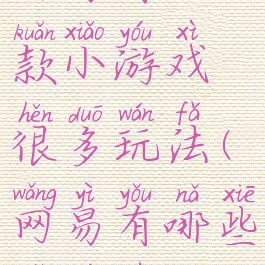 kuǎn xiǎo yóu xì
款小游戏
hěn duō wán fǎ
很多玩法(
wǎng yì yǒu nǎ xiē
网易有哪些